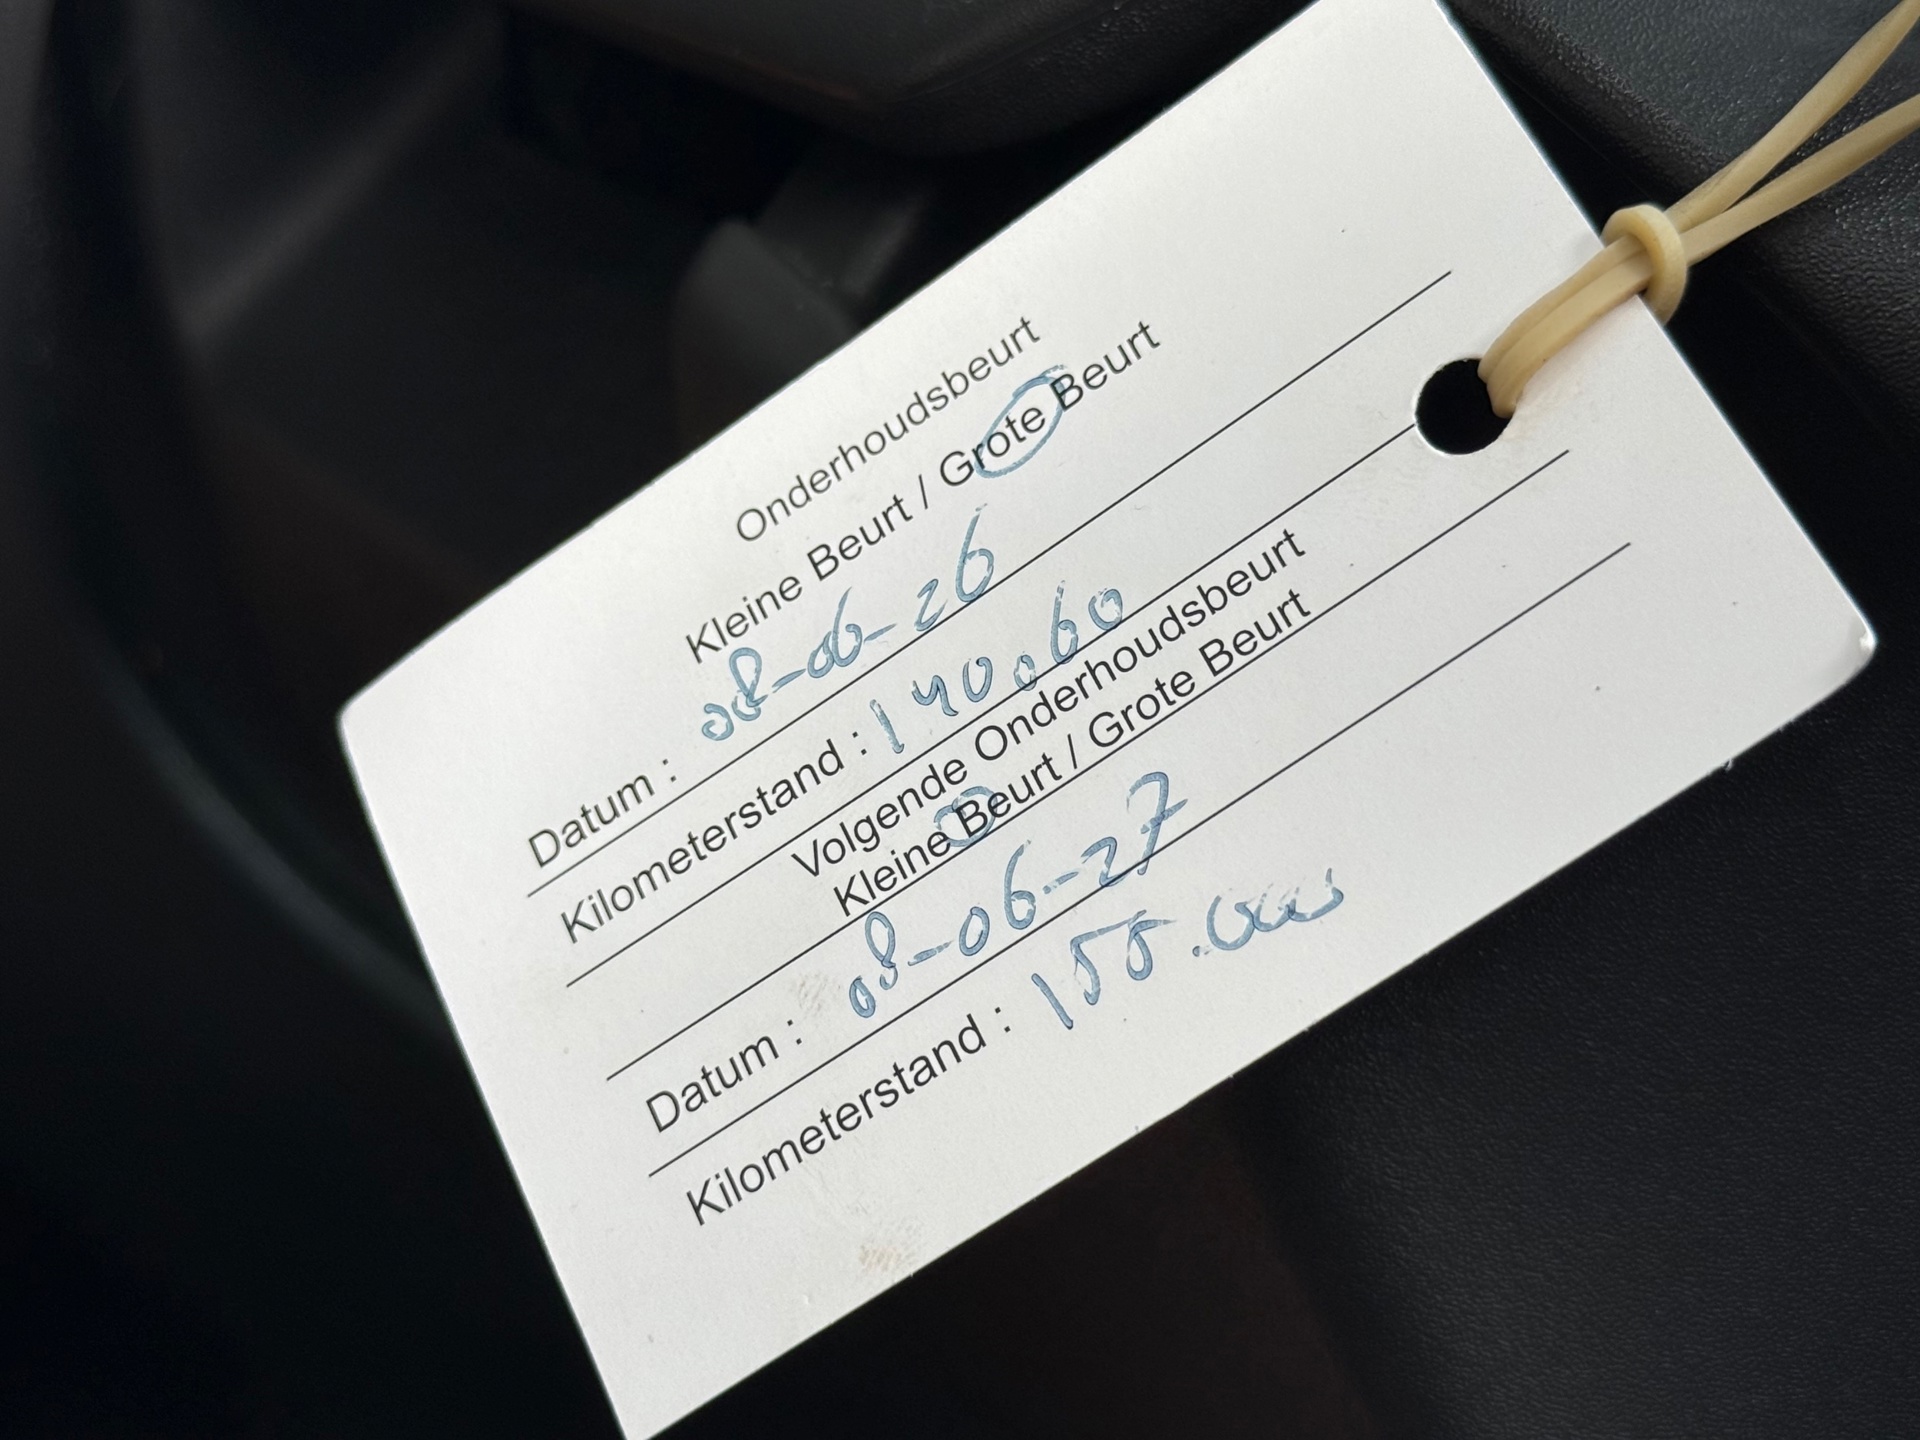 Onderhoudsbeurt
Kleine Beurt / Grote Beurt
Datum : 08-06-26
Kilometerstand : 140.060
Volgende Onderhoudsbeurt
Kleine Beurt / Grote Beurt
Datum : 08-06-27
Kilometerstand : 155.000